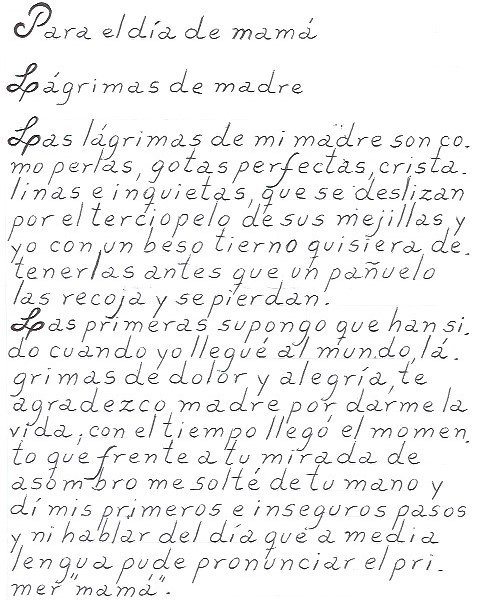 Para el día de mamá
Lágrimas de madre
Las lágrimas de mi madre son co-
mo perlas, gotas perfectas, crista-
linas e inquietas, que se deslizan
por el terciopelo de sus mejillas y
yo con un beso tierno quisiera de-
tenerlas antes que un pañuelo
las recoja y se pierdan.
Las primeras supongo que han si-
do cuando yo llegué al mundo, lá-
grimas de dolor y alegría, te
agradezco madre por darme la
vida, con el tiempo llegó el momen-
to que frente a tu mirada de
asombro me solté de tu mano y
dí mis primeros e inseguros pasos
y ni hablar del día que a media
lengua pude pronunciar el pri-
mer "mamá".